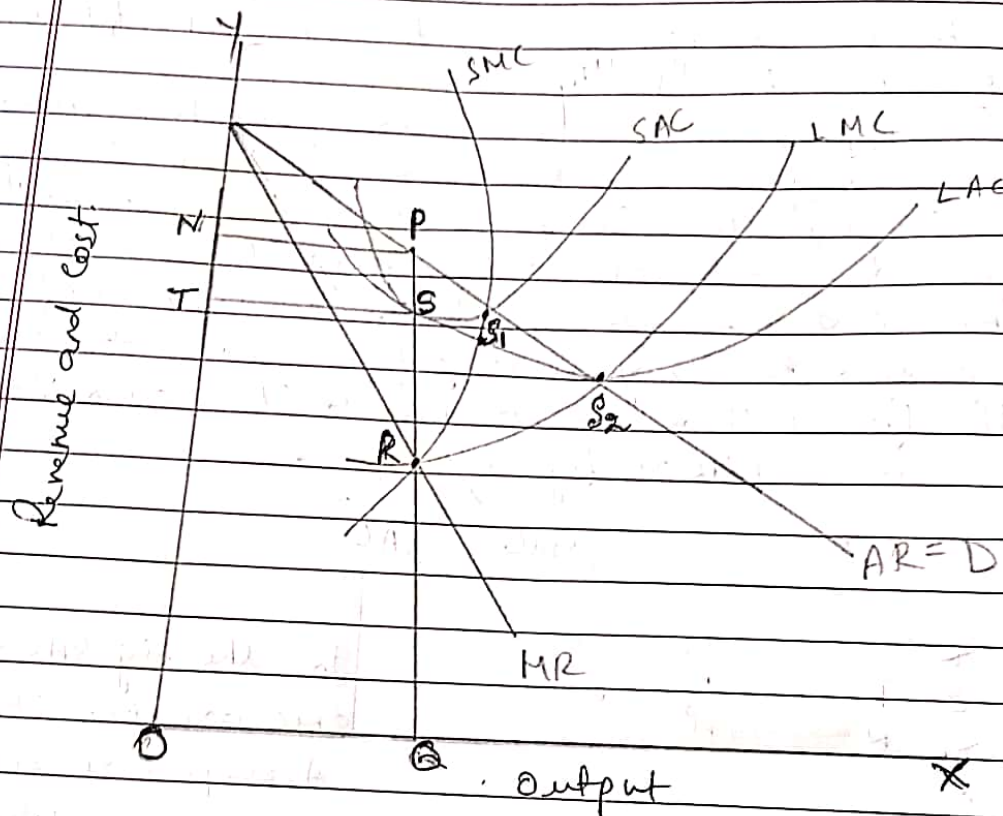 Y
SMC
SAC
LMC
LAC
N
P
Revenue and Cost.
T
S
S1
S2
R
AR = D
MR
O
Q
Output
X